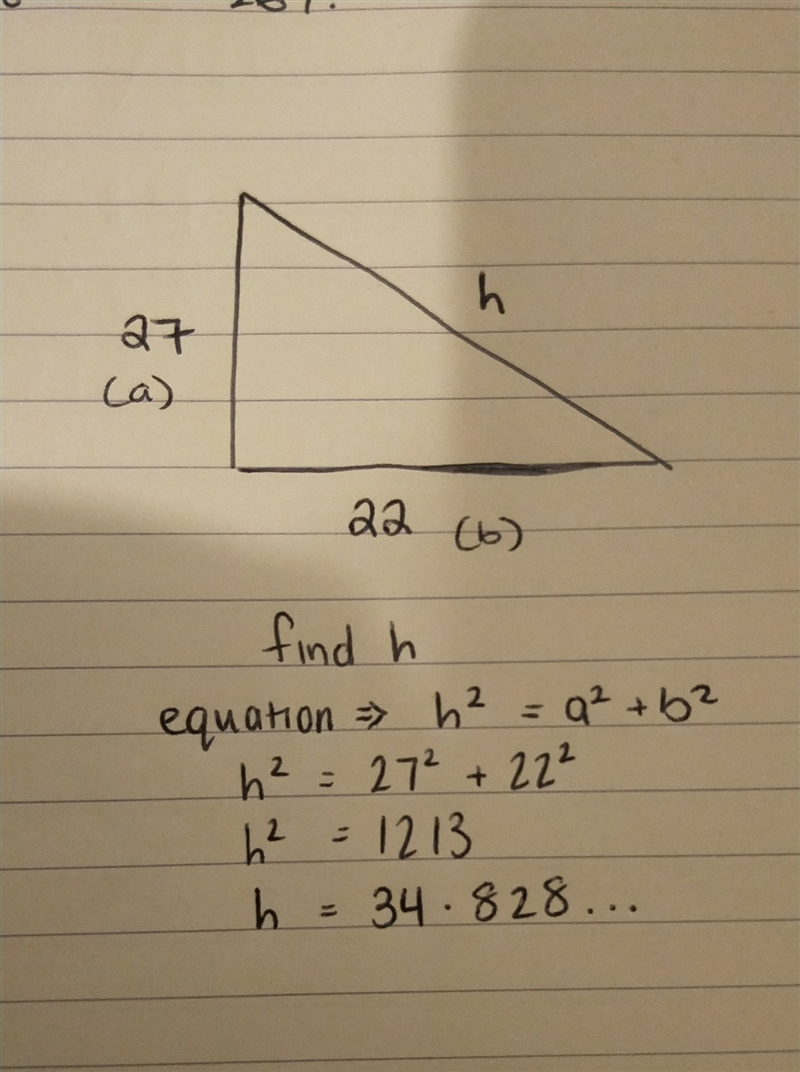 27
(a)
h
22 (b)
find h
equation ⇒ h² = a² + b²
h² = 27² + 22²
h² = 1213
h = 34·828...